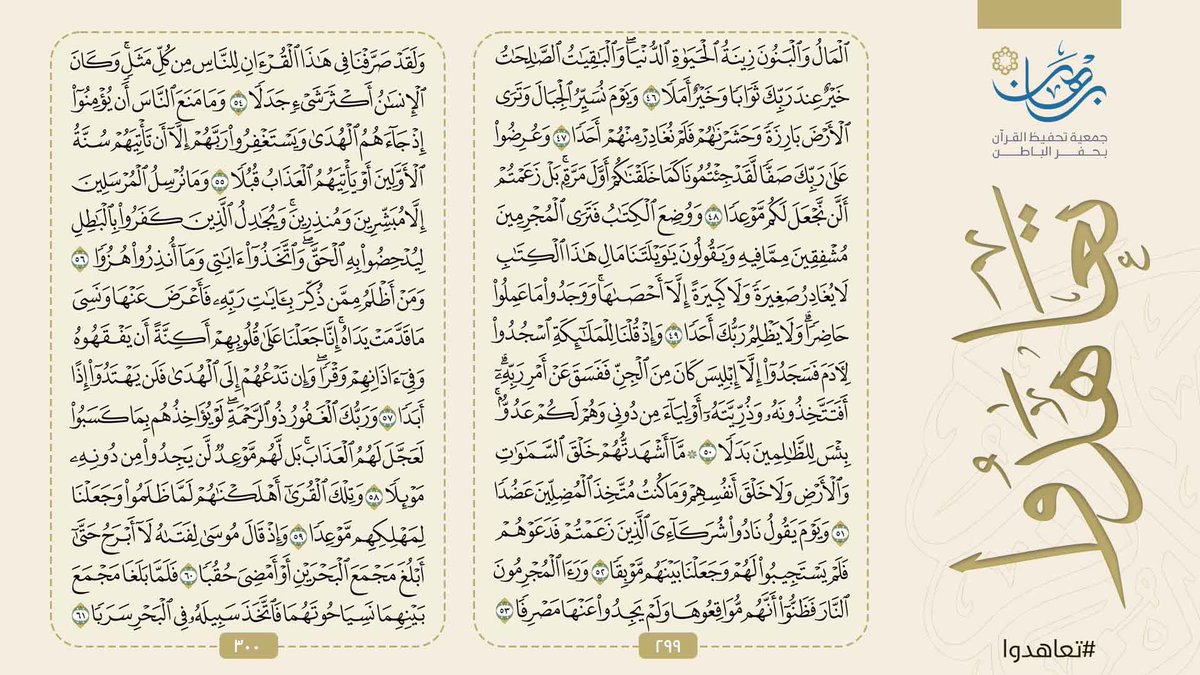 برهان
جمعية تحفيظ القرآن
بحفر الباطن
تعاهدوا
#تعاهدوا
ٱلْمَالُ وَٱلْبَنُونَ زِينَةُ ٱلْحَيَوٰةِ ٱلدُّنْيَا ۖ وَٱلْبَٰقِيَٰتُ ٱلصَّٰلِحَٰتُ
خَيْرٌ عِندَ رَبِّكَ ثَوَابًا وَخَيْرٌ أَمَلًا ٤٦ وَيَوْمَ نُسَيِّرُ ٱلْجِبَالَ وَتَرَى
ٱلْأَرْضَ بَارِزَةً وَحَشَرْنَٰهُمْ فَلَمْ نُغَادِرْ مِنْهُمْ أَحَدًا ٤٧ وَعُرِضُوا۟
عَلَىٰ رَبِّكَ صَفًّا لَّقَدْ جِئْتُمُونَا كَمَا خَلَقْنَٰكُمْ أَوَّلَ مَرَّةٍۭ ۚ بَلْ زَعَمْتُمْ
أَلَّن نَّجْعَلَ لَكُم مَّوْعِدًا ٤٨ وَوُضِعَ ٱلْكِتَٰبُ فَتَرَى ٱلْمُجْرِمِينَ
مُشْفِقِينَ مِمَّا فِيهِ وَيَقُولُونَ يَٰوَيْلَتَنَا مَالِ هَٰذَا ٱلْكِتَٰبِ
لَا يُغَادِرُ صَغِيرَةً وَلَا كَبِيرَةً إِلَّآ أَحْصَىٰهَا ۚ وَوَجَدُوا۟ مَا عَمِلُوا۟
حَاضِرًا ۗ وَلَا يَظْلِمُ رَبُّكَ أَحَدًا ٤٩ وَإِذْ قُلْنَا لِلْمَلَٰٓئِكَةِ ٱسْجُدُوا۟
لِـَٔادَمَ فَسَجَدُوٓا۟ إِلَّآ إِبْلِيسَ كَانَ مِنَ ٱلْجِنِّ فَفَسَقَ عَنْ أَمْرِ رَبِّهِۦٓ ۗ
أَفَتَتَّخِذُونَهُۥ وَذُرِّيَّتَهُۥٓ أَوْلِيَآءَ مِن دُونِى وَهُمْ لَكُمْ عَدُوٌّۢ ۚ
بِئْسَ لِلظَّٰلِمِينَ بَدَلًا ٥٠ ۞ مَّآ أَشْهَدتُّهُمْ خَلْقَ ٱلسَّمَٰوَٰتِ
وَٱلْأَرْضِ وَلَا خَلْقَ أَنفُسِهِمْ وَمَا كُنتُ مُتَّخِذَ ٱلْمُضِلِّينَ عَضُدًا
٥١ وَيَوْمَ يَقُولُ نَادُوا۟ شُرَكَآءِىَ ٱلَّذِينَ زَعَمْتُمْ فَدَعَوْهُمْ
فَلَمْ يَسْتَجِيبُوا۟ لَهُمْ وَجَعَلْنَا بَيْنَهُم مَّوْبِقًا ٥٢ وَرَءَا ٱلْمُجْرِمُونَ
ٱلنَّارَ فَظَنُّوٓا۟ أَنَّهُم مُّوَاقِعُوهَا وَلَمْ يَجِدُوا۟ عَنْهَا مَصْرِفًا ٥٣
٢٩٩
وَلَقَدْ صَرَّفْنَا فِى هَٰذَا ٱلْقُرْءَانِ لِلنَّاسِ مِن كُلِّ مَثَلٍ ۚ وَكَانَ
ٱلْإِنسَٰنُ أَكْثَرَ شَىْءٍ جَدَلًا ٥٤ وَمَا مَنَعَ ٱلنَّاسَ أَن يُؤْمِنُوٓا۟
إِذْ جَآءَهُمُ ٱلْهُدَىٰ وَيَسْتَغْفِرُوا۟ رَبَّهُمْ إِلَّآ أَن تَأْتِيَهُمْ سُنَّةُ
ٱلْأَوَّلِينَ أَوْ يَأْتِيَهُمُ ٱلْعَذَابُ قُبُلًا ٥٥ وَمَا نُرْسِلُ ٱلْمُرْسَلِينَ
إِلَّا مُبَشِّرِينَ وَمُنذِرِينَ ۚ وَيُجَٰدِلُ ٱلَّذِينَ كَفَرُوا۟ بِٱلْبَٰطِلِ
لِيُدْحِضُوا۟ بِهِ ٱلْحَقَّ ۖ وَٱتَّخَذُوٓا۟ ءَايَٰتِى وَمَآ أُنذِرُوا۟ هُزُوًا ٥٦
وَمَنْ أَظْلَمُ مِمَّن ذُكِّرَ بِـَٔايَٰتِ رَبِّهِۦ فَأَعْرَضَ عَنْهَا وَنَسِىَ
مَا قَدَّمَتْ يَدَاهُ ۚ إِنَّا جَعَلْنَا عَلَىٰ قُلُوبِهِمْ أَكِنَّةً أَن يَفْقَهُوهُ
وَفِىٓ ءَاذَانِهِمْ وَقْرًا ۖ وَإِن تَدْعُهُمْ إِلَى ٱلْهُدَىٰ فَلَن يَهْتَدُوٓا۟ إِذًا
أَبَدًا ٥٧ وَرَبُّكَ ٱلْغَفُورُ ذُو ٱلرَّحْمَةِ ۖ لَوْ يُؤَاخِذُهُم بِمَا كَسَبُوا۟
لَعَجَّلَ لَهُمُ ٱلْعَذَابَ ۚ بَل لَّهُم مَّوْعِدٌ لَّن يَجِدُوا۟ مِن دُونِهِۦ
مَوْئِلًا ٥٨ وَتِلْكَ ٱلْقُرَىٰٓ أَهْلَكْنَٰهُمْ لَمَّا ظَلَمُوا۟ وَجَعَلْنَا
لِمَهْلِكِهِم مَّوْعِدًا ٥٩ وَإِذْ قَالَ مُوسَىٰ لِفَتَىٰهُ لَآ أَبْرَحُ حَتَّىٰٓ
أَبْلُغَ مَجْمَعَ ٱلْبَحْرَيْنِ أَوْ أَمْضِىَ حُقُبًا ٦٠ فَلَمَّا بَلَغَا مَجْمَعَ
بَيْنِهِمَا نَسِيَا حُوتَهُمَا فَٱتَّخَذَ سَبِيلَهُۥ فِى ٱلْبَحْرِ سَرَبًا ٦١
٣٠٠